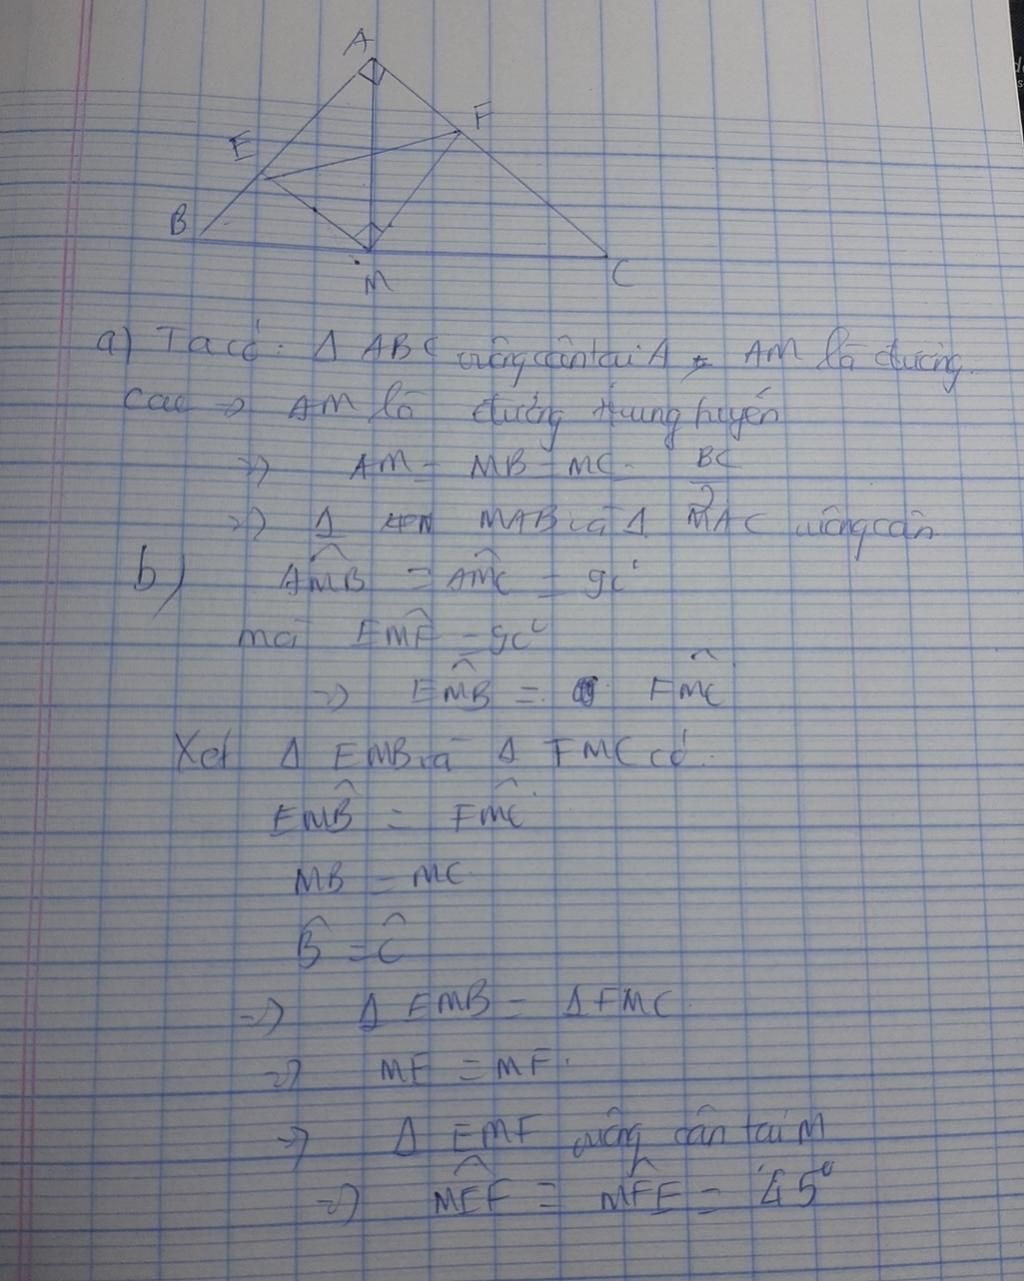 A
E
F
B
M
C
a) Ta có: Δ ABC vuông cân tại A, AM là đường
cao => AM là đường trung tuyến
=> AM = MB = MC = BC/2
=> Δ MAB và Δ MAC vuông cân
b) AM̂B = AM̂C = 90°
mà EM̂F = 90°
=> EM̂B = FM̂C
Xét Δ EMB và Δ FMC có:
EM̂B = FM̂C
MB = MC
B̂ = Ĉ
=> Δ EMB = Δ FMC
=> ME = MF.
=> Δ EMF vuông cân tại M
=> MÊF = MF̂E = 45°